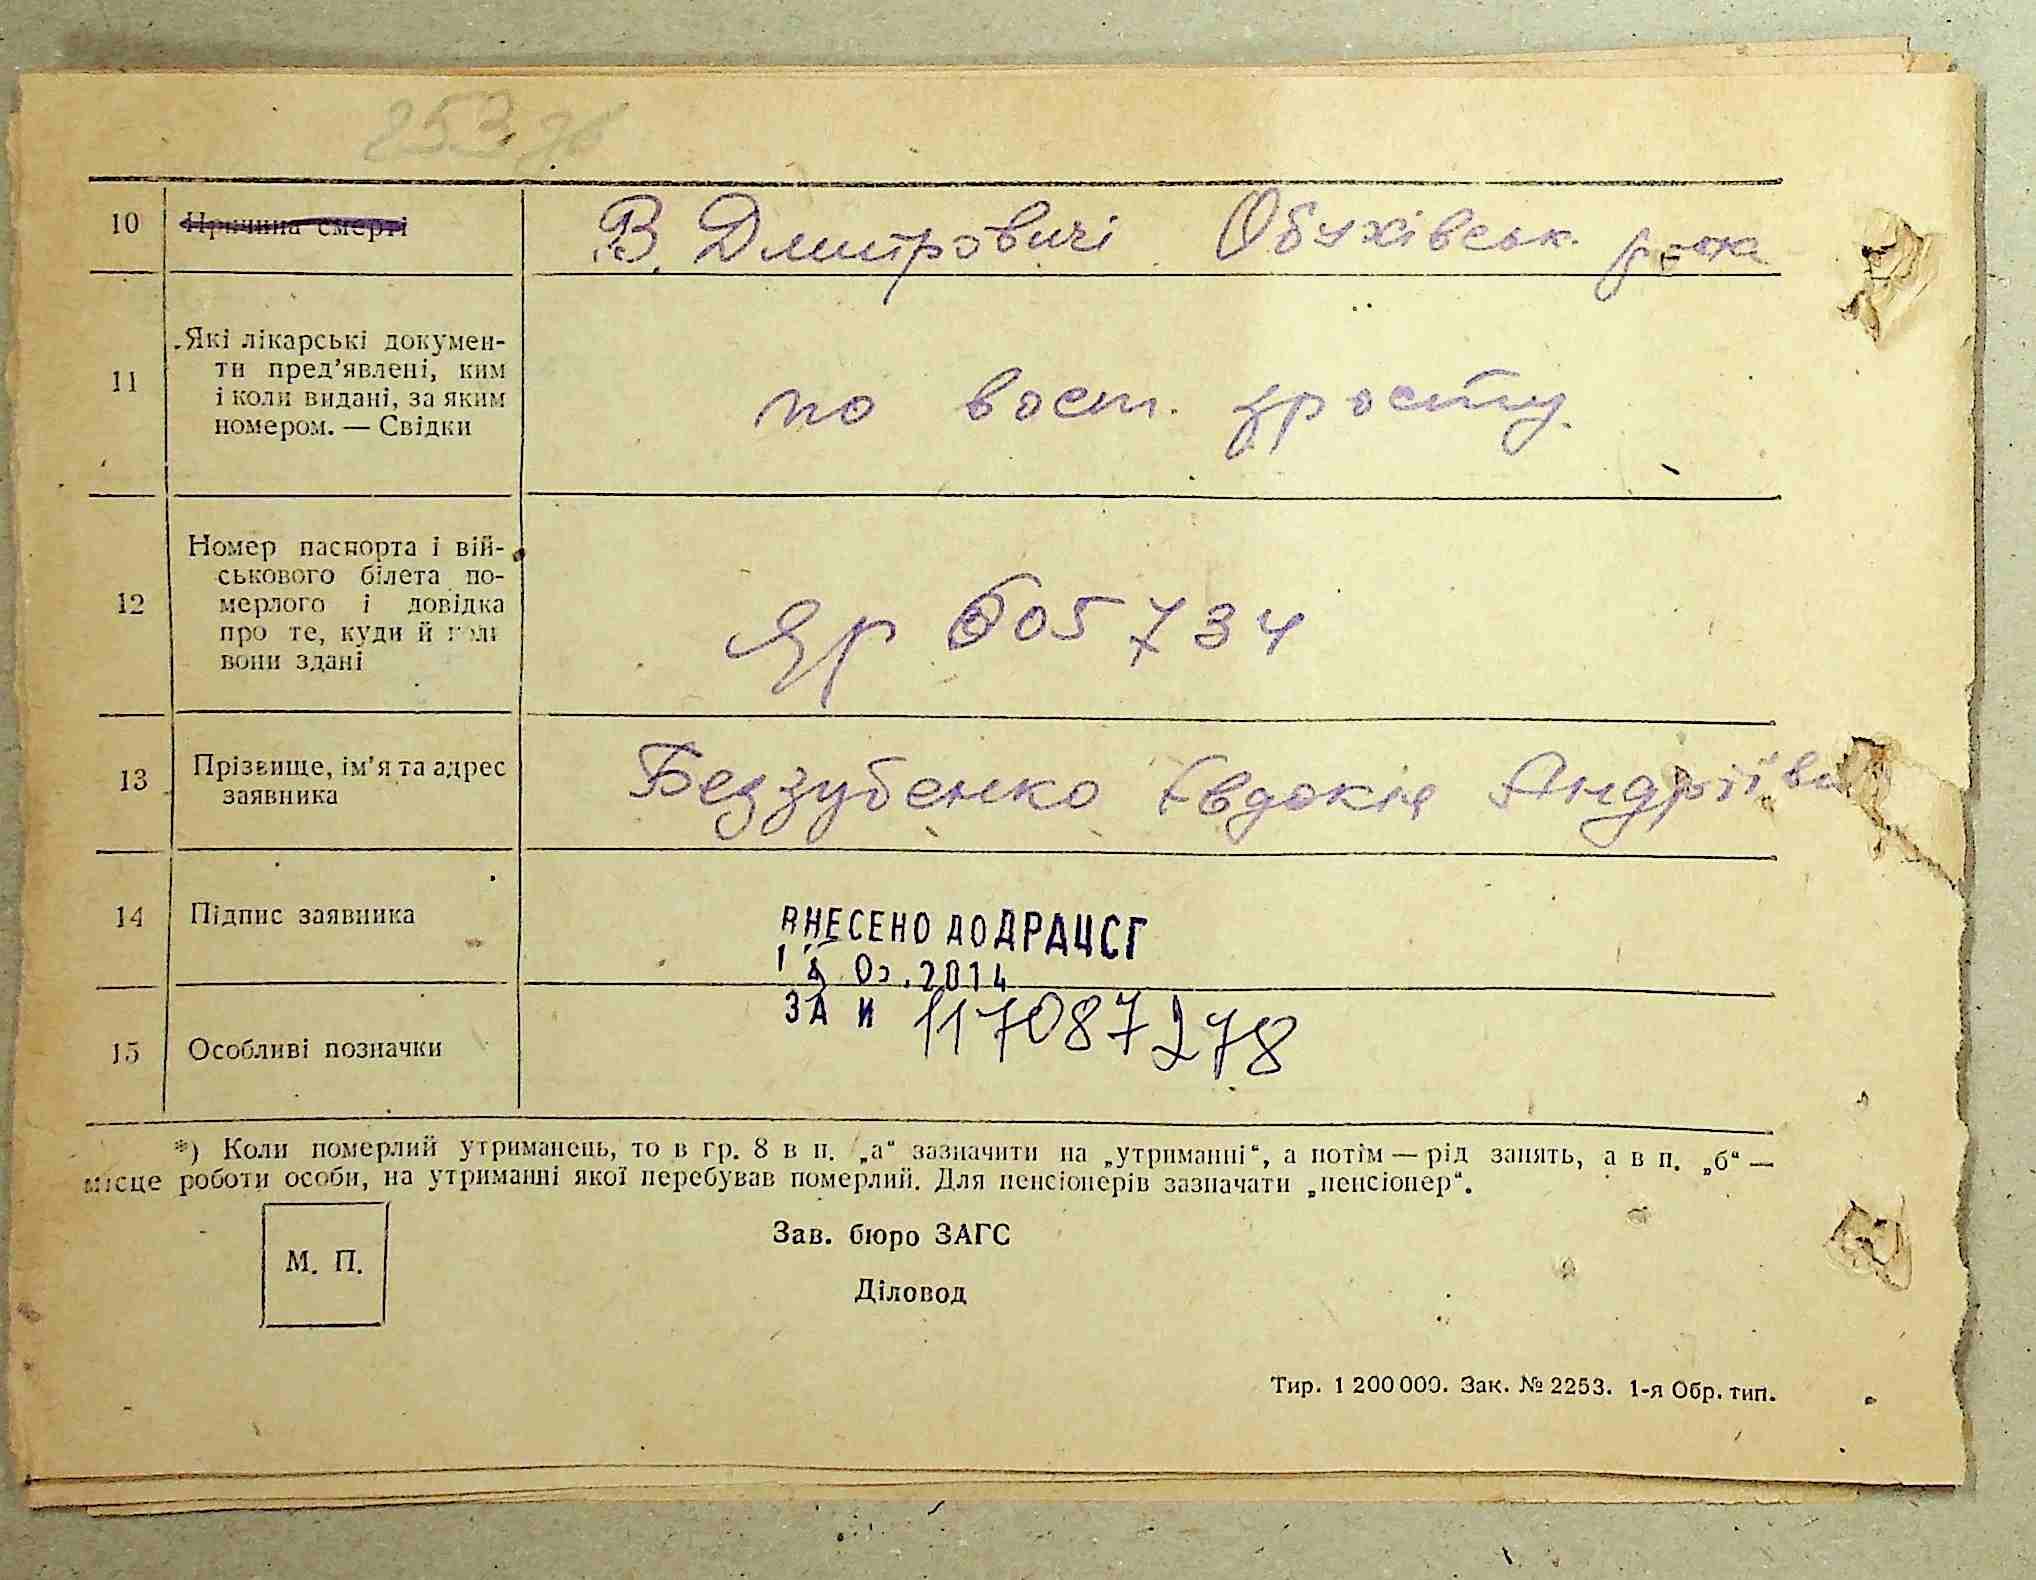 253
10 Причина смерті В. Дмитровичі Обухівськ.
11 Які лікарські докумен-
ти пред'явлені, ким
і коли видані, за яким
номером. — Свідки
по восст.
12 Номер паспорта і вій-
ського білета по-
мерлого і довідка
про те, куди й коли
вони здані
ЯР 605734
13 Прізвище, ім'я та адрес
заявника
Беззубенко Євдокія Андріївн
14 Підпис заявника
ВНЕСЕНО ДО ДРАЦСГ
.2014
15 Особливі позначки
ЗА И 117087278
*) Коли померлий утриманець, то в гр. 8 в п. „а“ зазначити на „утриманні“, а потім — рід занять, а в п. „б“ —
місце роботи особи, на утриманні якої перебував померлий. Для пенсіонерів зазначати „пенсіонер“.
М. П.
Зав. бюро ЗАГС
Діловод
Тир. 1 200 000. Зак. № 2253. 1-я Обр. тип.